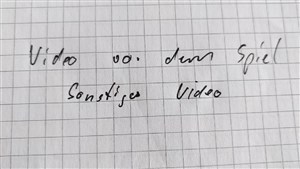 Video vo. dem Spiel
Sonstiges Video